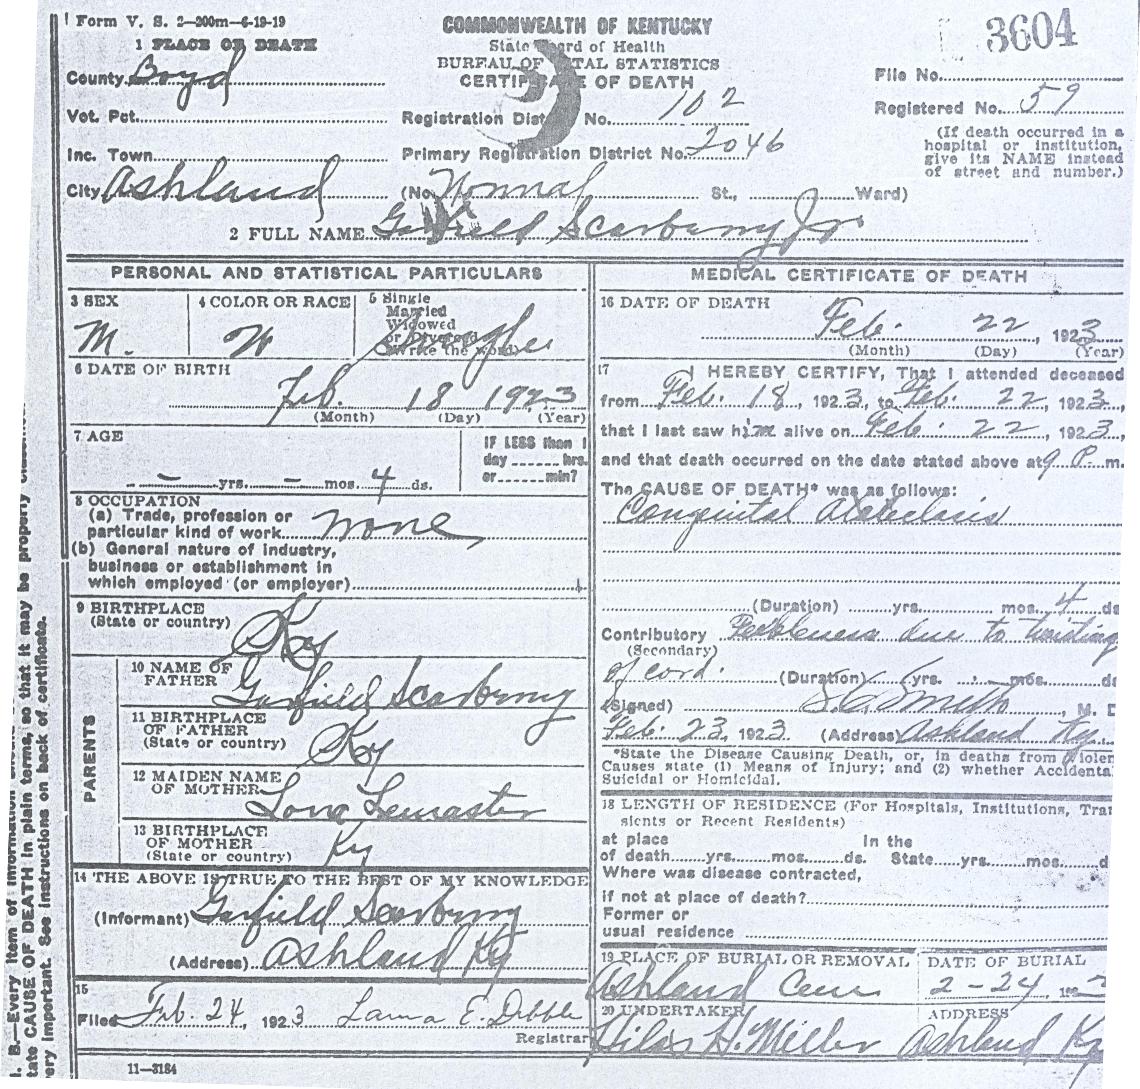 Form V. S. 2—200m—6-19-19
COMMONWEALTH OF KENTUCKY
3604
1 PLACE OF DEATH
State Board of Health
County Boyd
BUREAU OF VITAL STATISTICS
CERTIFICATE OF DEATH
File No.
Vot. Pct.
Registration District No. 102
Registered No. 59
Inc. Town
Primary Registration District No. 2046
(If death occurred in a
hospital or institution,
give its NAME instead
of street and number.)
City Ashland (No. Normal St., Ward)
2 FULL NAME Garfield Scarberry Jr
PERSONAL AND STATISTICAL PARTICULARS
3 SEX M.
4 COLOR OR RACE W
5 Single
Married
Widowed
or Divorced
(Write the word)
Single
6 DATE OF BIRTH
Feb. 18 1923
(Month) (Day) (Year)
7 AGE
— yrs. — mos. 4 ds.
IF LESS than 1
day hrs.
or min?
8 OCCUPATION
(a) Trade, profession or
particular kind of work none
(b) General nature of industry,
business or establishment in
which employed (or employer)
9 BIRTHPLACE
(State or country) Ky
PARENTS
10 NAME OF
FATHER Garfield Scarberry
11 BIRTHPLACE
OF FATHER
(State or country) Ky
12 MAIDEN NAME
OF MOTHER Lona Lemaster
13 BIRTHPLACE
OF MOTHER
(State or country) Ky
14 THE ABOVE IS TRUE TO THE BEST OF MY KNOWLEDGE
(Informant) Garfield Scarberry
(Address) Ashland Ky
15
Filed Feb. 24, 1923 E. Dibble
Registrar
11—3184
MEDICAL CERTIFICATE OF DEATH
16 DATE OF DEATH
Feb. 22, 1923
(Month) (Day) (Year)
17 I HEREBY CERTIFY, That I attended deceased
from Feb. 18, 1923, to Feb. 22, 1923,
that I last saw him alive on Feb. 22, 1923,
and that death occurred on the date stated above at 9 P.m.
The CAUSE OF DEATH* was as follows:
Congenital Atelectasis
(Duration) yrs. mos. 4 ds
Contributory Feebleness due to
(Secondary)
of cord. (Duration) yrs. mos. ds
(Signed) Smith, M. D
Feb. 23, 1923 (Address) Ashland Ky.
*State the Disease Causing Death, or, in deaths from Violen
Causes state (1) Means of Injury; and (2) whether Accidenta
Suicidal or Homicidal.
18 LENGTH OF RESIDENCE (For Hospitals, Institutions, Tran
sients or Recent Residents)
at place In the
of death yrs. mos. ds. State yrs. mos. d
Where was disease contracted,
if not at place of death?
Former or
usual residence
19 PLACE OF BURIAL OR REMOVAL
Ashland Cem
DATE OF BURIAL
2-24, 192
20 UNDERTAKER
Hilas H. Miller
ADDRESS
Ashland Ky
B.—Every item of information
tate CAUSE OF DEATH in plain terms, so that it may be properly
ery important. See instructions on back of certificate.